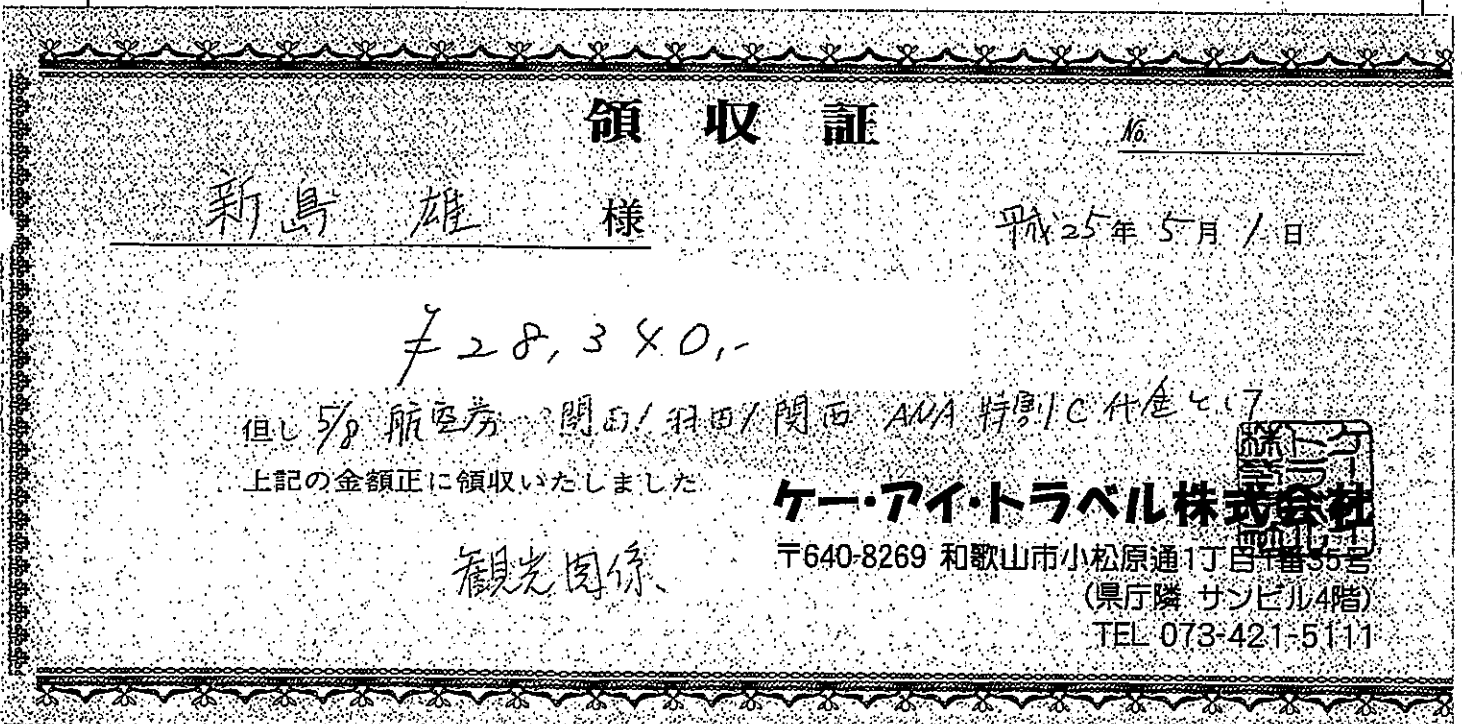 領収証
No.
新島 雄 様
平成25年5月1日
¥28,340,-
但し 5/8 航空券 関西/羽田/関西 ANA 特割C代金として
上記の金額正に領収いたしました
ケー・アイ・トラベル株式会社
〒640-8269 和歌山市小松原通1丁目1番35号
(県庁隣 サンビル4階)
TEL 073-421-5111
観光関係、